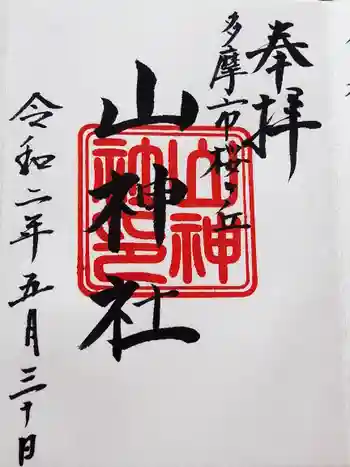 奉拝
多摩市桜ヶ丘
山神社
山神
社印
令和二年五月三十日